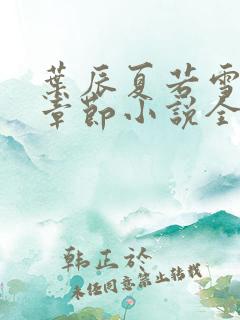 葉辰夏若雪
章節小說全
韩正於
未经同意禁止转载